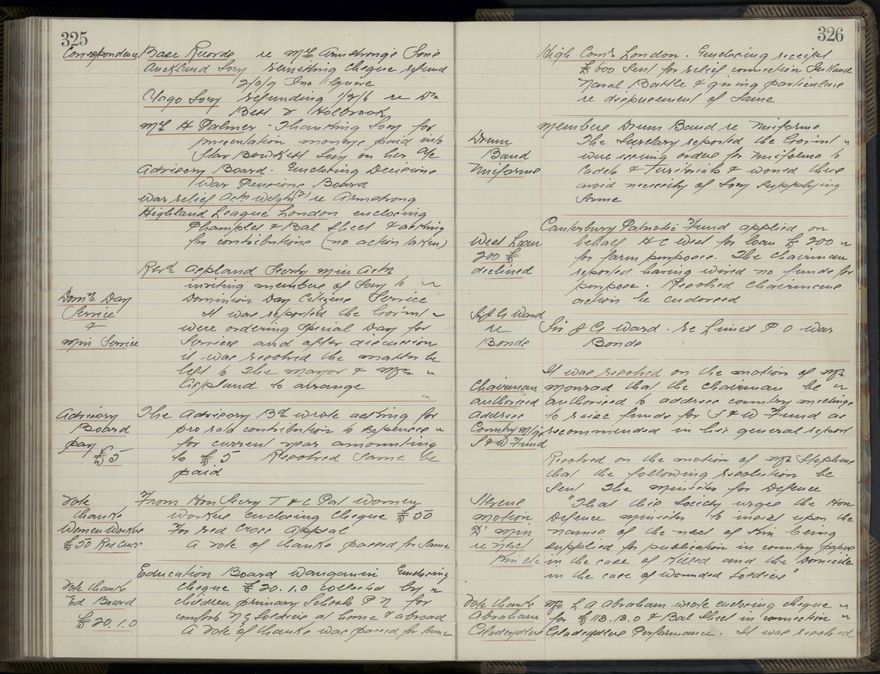 325
Correspondence Base Records re Mrs Armstrong's Sons
Auckland Socy remitting cheque refund
Otago Socy refunding 1/3/6 re
Bett & Holbrook
Mrs H Palmer. Thanking Socy for
presentation moneys paid into
Star Bowkett Socy on her a/c
Advisory Board. Enclosing Decisions
War Pensions Board
War relief re Armstrong
Highland League London enclosing
Pamphlet & Bal Sheet & asking
for contributions (no action taken)
Domn Day
Service
&
Mem Service
Revd Aspland Secty Min Assn
inviting members of Socy to
Dominion Day Citizens Service
It was reported the Govrnt
were ordering special Day for
Service and after discussion
it was resolved the matter be
left to The Mayor & Mr
Aspland to arrange
Advisory
Board
pay
£5
The Advisory Bd wrote asking for
pro rata contribution to expenses
for current year amounting
to £5 Resolved same be
paid
Vote
thanks
Women Workers
£50 Red Cross
From Hon Secy T & C Pat Women
workers enclosing cheque £50
for red Cross appeal
A vote of thanks passed for same
Vote thanks
Ed Board
£20.1.0
Education Board Wanganui Enclosing
cheque £20.1.0 collected by
children primary Schools P N for
comforts N Z Soldiers at home & abroad
A vote of thanks was passed for same
326
High Comr London. Enclosing receipt
£600 sent for relief connection Jutland
Naval Battle & giving particulars
re dispursement of same
Drum
Band
Uniforms
Members Drum Band re Uniforms
The Secretary reported the Govrnt
were issuing orders for uniforms to
Cadets & Territorials & would thus
avoid necessity of Socy supplying
same
West Loan
200 £
declined
Canterbury Patriotic Fund applied on
behalf H C West for loan £200
for farm purposes. The chairman
reported having wired no funds for
purpose. Resolved chairmans
action be endorsed
Sir J G Ward
re
Bonds
Sir J G Ward. re P O War
Bonds
Chairman
authorised
address
Country Mtgs
S & W Fund
It was resolved on the motion of Mr
Monrad that the Chairman be
authorised to address country meetings
to raise funds for S & W Fund as
recommended in his general report
Resolved on the motion of Mr Stephens
that the following resolution be
sent The Minister for Defence
Stevens
motion
D' Min
re next
Kin etc
"That this Society urges the Hon
Defence Minister to insist upon the
names of the next of Kin being
supplied for publication in country papers
in the case of Killed and the Domicile
in the case of wounded Soldiers"
Vote thanks
Abraham
Mr L A Abraham wrote enclosing cheque
for £113.13.0 & Bal Sheet in connection
Performance. It was resolved